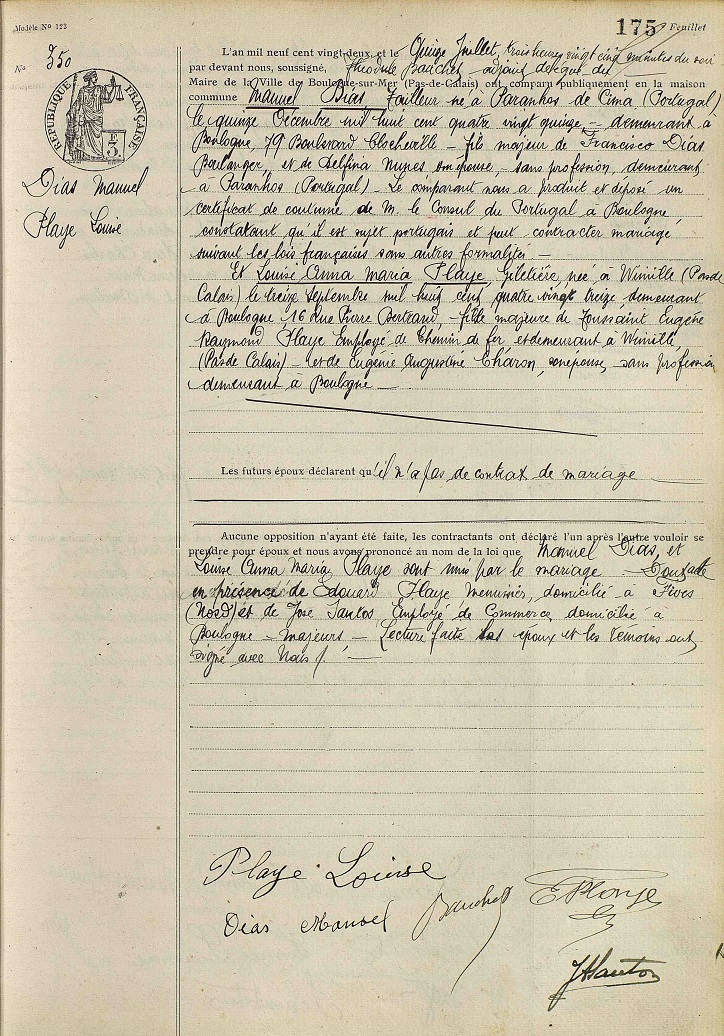 Modèle No 123
175 Feuillet
No 350
RÉPUBLIQUE FRANÇAISE
Dias Manuel
Playe Louise
L'an mil neuf cent vingt-deux, et le Quinze Juillet, trois heures vingt cinq minutes du soir
par devant nous, soussigné, Théodule Bauchet adjoint délégué du
Maire de la Ville de Boulogne-sur-Mer (Pas-de-Calais) ont comparu publiquement en la maison
commune Manuel Dias Tailleur né à Paranhos de Cima (Portugal)
le quinze Décembre mil huit cent quatre vingt quinze - demeurant à
Boulogne, 79 Boulevard Clocheville - fils majeur de Francisco Dias
Boulanger, et de Delfina Nunes, son épouse - sans profession, demeurant
à Paranhos (Portugal) - Le comparant nous a produit et déposé un
certificat de coutume de M. le Consul du Portugal à Boulogne,
constatant qu'il est sujet portugais et peut contracter mariage,
suivant les lois françaises sans autres formalités -
Et Louise Anna Maria Playe, giletière, née à Wimille (Pas de
Calais) le treize Septembre mil huit cent quatre vingt treize demeurant
à Boulogne, 16 rue Pierre Bertrand, - fille majeure de Toussaint Eugène
Raymond Playe Employé de Chemin de fer, et demeurant à Wimille,
(Pas de Calais) - et de Eugénie Augustine Charon, son épouse, sans profession
demeurant à Boulogne -
Les futurs époux déclarent qu'il n'a pas de contrat de mariage
Aucune opposition n'ayant été faite, les contractants ont déclaré l'un après l'autre vouloir se
prendre pour époux et nous avons prononcé au nom de la loi que Manuel Dias, et
Louise Anna Maria Playe sont unis par le mariage - Dont acte
en présence de Edouard Playe Menuisier, domicilié à Fives
(Nord) et de José Santos Employé de Commerce, domicilié à
Boulogne - majeurs - Lecture faite les époux et les témoins ont
signé avec Nous /. -
Playe Louise
Dias Manoel Bauchet E Playe
JASantos